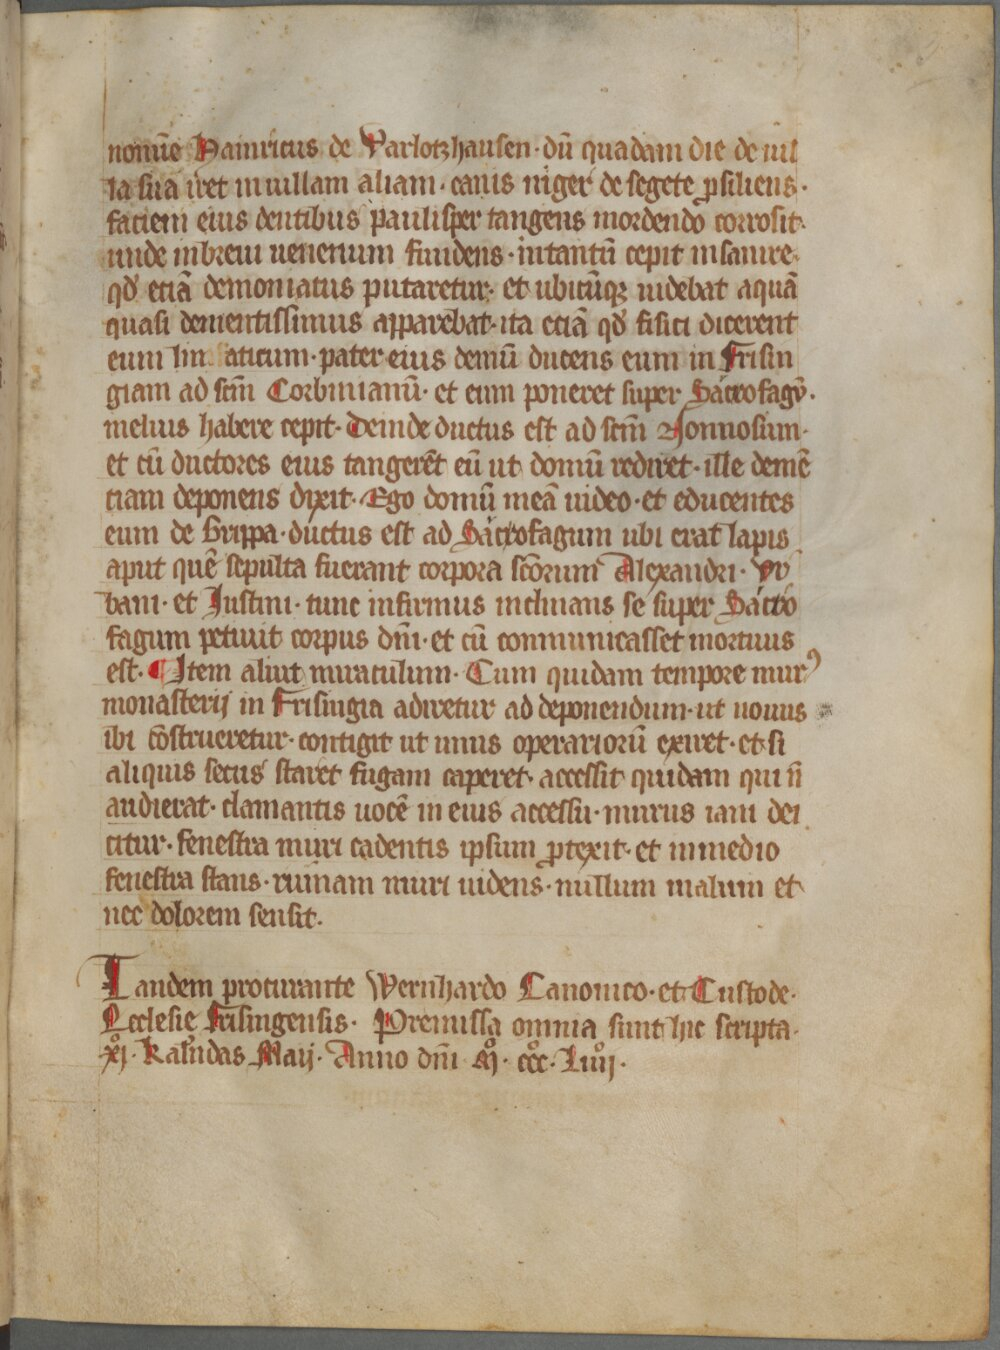 nomīe Hainricus de Parlotzhausen· dū quadam die de uil
la suā iret in uillam aliam· canis niger de segete ꝓsiliens·
faciem eius dentibus paulisper tangens mordendo corrosit·
unde inbreui uenenum fundens· intantū cepit insanire·
qd̄ etiā demoniatus putaretur· et ubicūqꝫ uidebat aquā
quasi dementissimus apparebat· ita etiā qd̄ fisici dicerent
eum lunaticum· pater eius demū ducens eum in Frisin
giam ad scm̄ Corbinianū· et eum poneret super Sarcofagū·
melius habere cepit· Deinde ductus est ad scm̄ Nonnosum·
et cū ductores eius tangerēt eū ut domū rediret· ille demē
tiam deponens dixit· Ego domū meā uideo· et educentes
eum de Grippa· ductus est ad Sarcofagum ubi erat lapis
aput quē sepulta fuerant corpora scōrum Alexandri· Vr
bani· et Justini· tunc infirmus inclinans se super Sarco
fagum petiuit corpus dn̄i· et cū communicasset mortuus
est· ¶ Item aliut miraculum· Cum quidam tempore murꝰ
monasterij in Frisingia adiretur ad deponendum· ut nouus
ibi cōstrueretur· contigit ut unus operariorū exiret· et si
aliquis secus staret fugam caperet· accessit quidam qui n̄
audierat· clamantis uocē in eius accessu· murus iam dei
citur· fenestra muri cadentis ipsum ꝓtexit· et inmedio
fenestra stans· ruinam muri uidens· nullum malum et
nec dolorem sensit·
Tandem procurante Wernhardo Canonico· et Custode·
Ecclesie Frisingensis· Premissa omnia sunt hic scripta·
xjͦ· Kalēndas Maij· Anno dn̄i Mͦ· cccͦ· Liiijͦ·